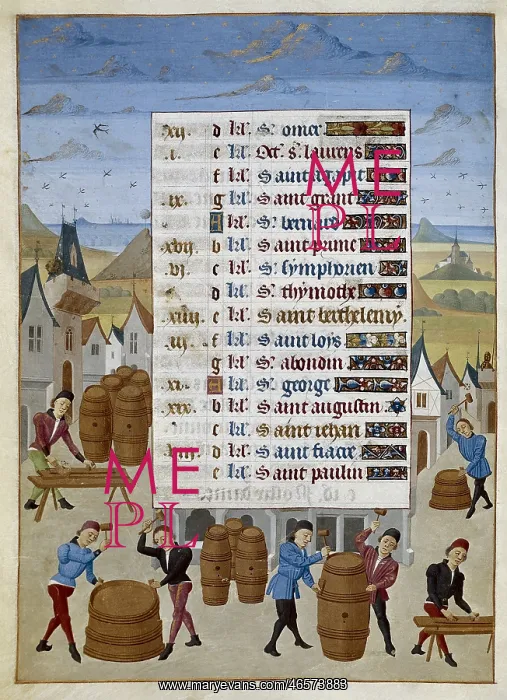 xij. d kl'. S. omer
.i. e kl'. Oct. s. laurens
f kl'. Saint
ix. g kl'. Saint grant
A kl'. S. bernart
xvij. b kl'. Saint prime
vj. c kl'. S. symphorien
d kl'. S. thymothe
xiiij. e kl'. Saint berthelemy.
iij. f kl'. Saint loys
g kl'. S. abondin
xi. A kl'. S. george
xix. b kl'. Saint augustin
c kl'. Saint iehan
viij. d kl'. Saint fiacre
e kl'. Saint paulin
ME
PL
ME
PL
www.maryevans.com/46573883